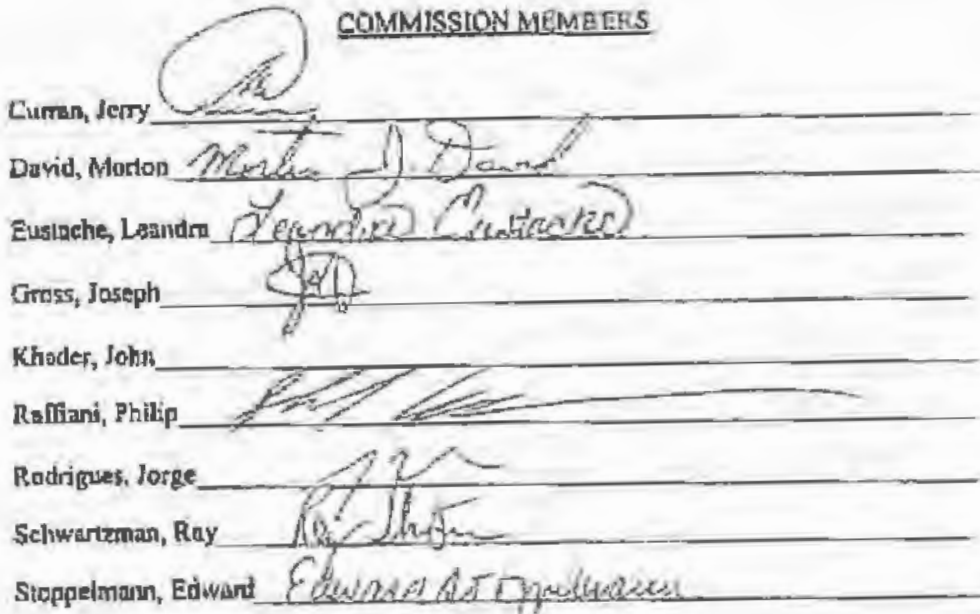 COMMISSION MEMBERS
Curran, Jerry
David, Morton Morton J. David
Eustache, Leandra Leandra Eustache
Gross, Joseph
Khader, John
Raffiani, Philip
Rodrigues, Jorge
Schwartzman, Ray
Stoppelmann, Edward Edward Stoppelmann